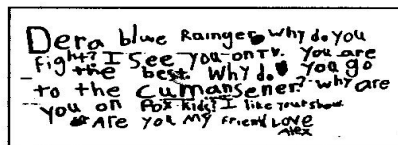 Dera blue Rainger Why do you
fight? I See you on TV. You are
the best Why do you go
to the Cumansener? why are
you on Fox Kids? I like yout show.
Are you my friend Love
Alex